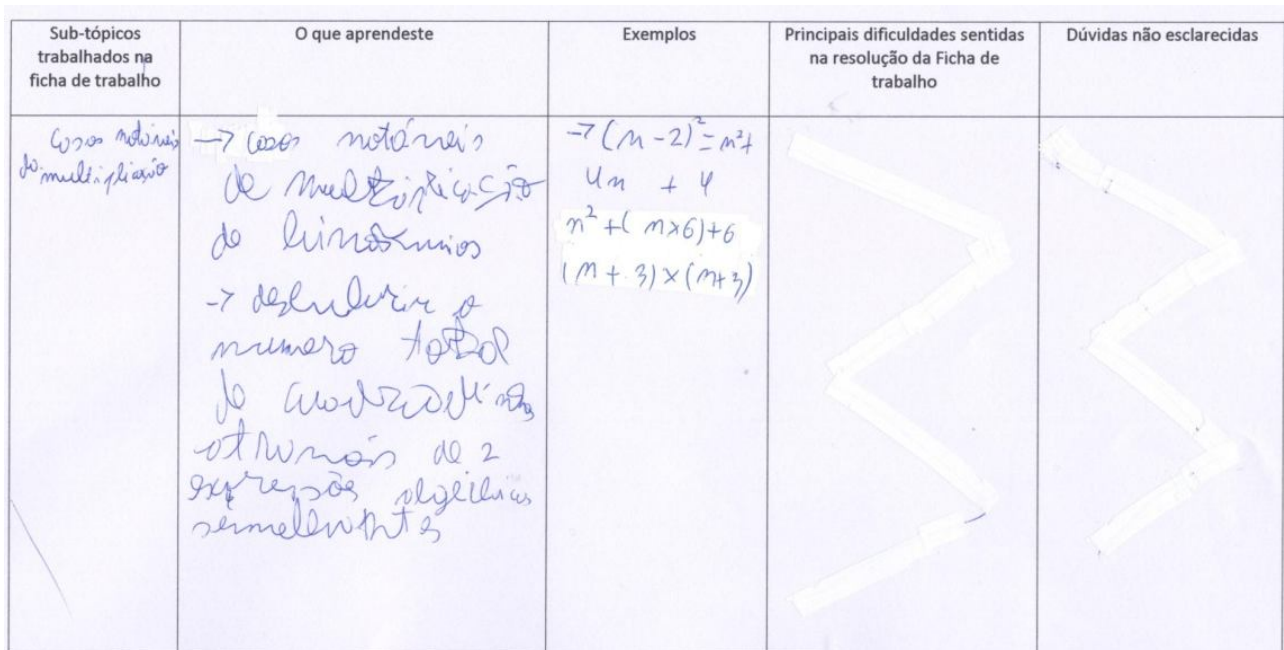 Sub-tópicos
trabalhados na
ficha de trabalho
O que aprendeste
Exemplos
Principais dificuldades sentidas
na resolução da Ficha de
trabalho
Dúvidas não esclarecidas
Casos notáveis
de multiplicação
→ Casos notáveis
de multiplicação
de binómios
→ descobrir o
numero total
de quadradinhos
através de 2
expressões algébricas
semelhantes
→ (n-2)² = n² +
4n + 4
n² + ( n×6)+6
(n + 3) × (n+3)